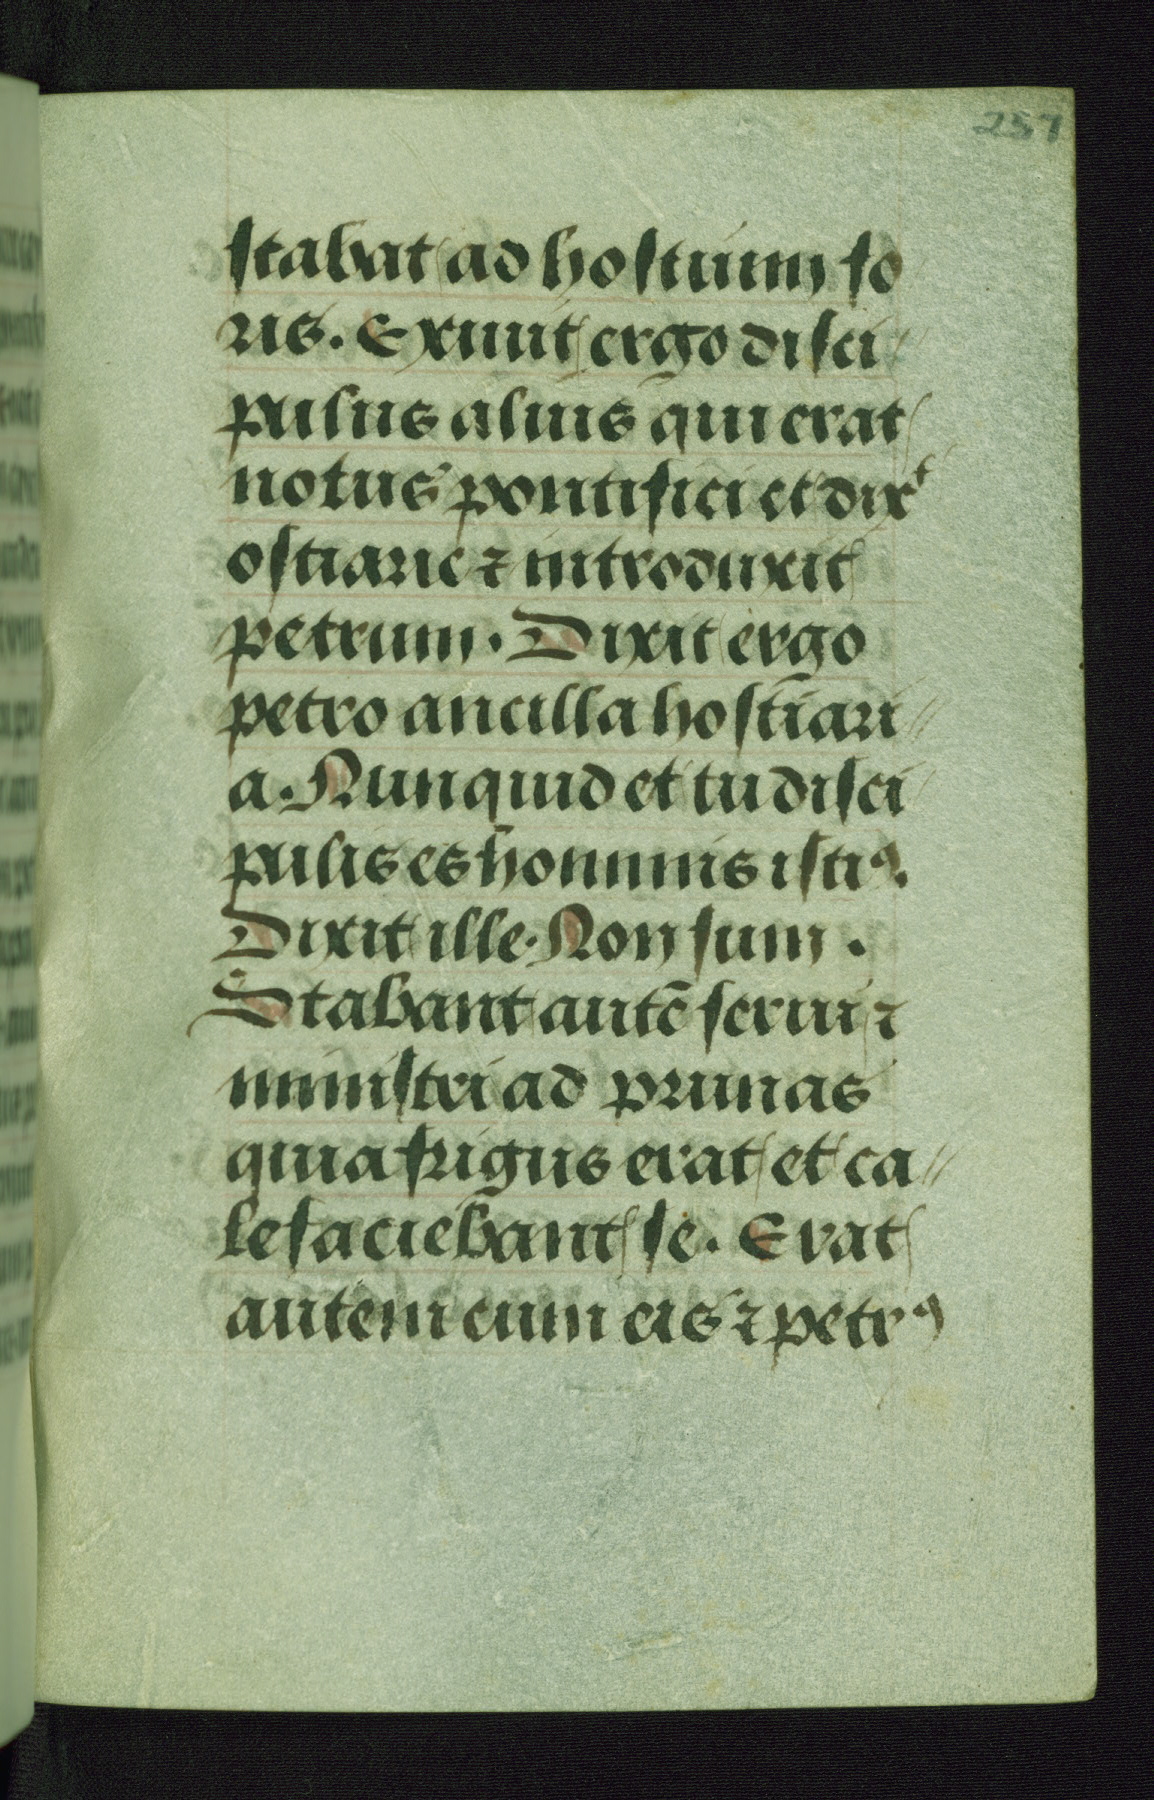 257
stabat ad hostium fo
ris. Exiuit ergo disci
pulus alius qui erat
notus pontifici et dixᵗ
ostiarie ⁊ introduxit
petrum. Dixit ergo
petro ancilla hostiari //
a. Nunquid et tu disci
pulis es hominis isti⁹.
Dixit ille. Non sum .
Stabant autē serui ⁊
ministri ad prunas
quia frigus erat et ca //
lefaciebant se. Erat
autem cum eis ⁊ petr⁹